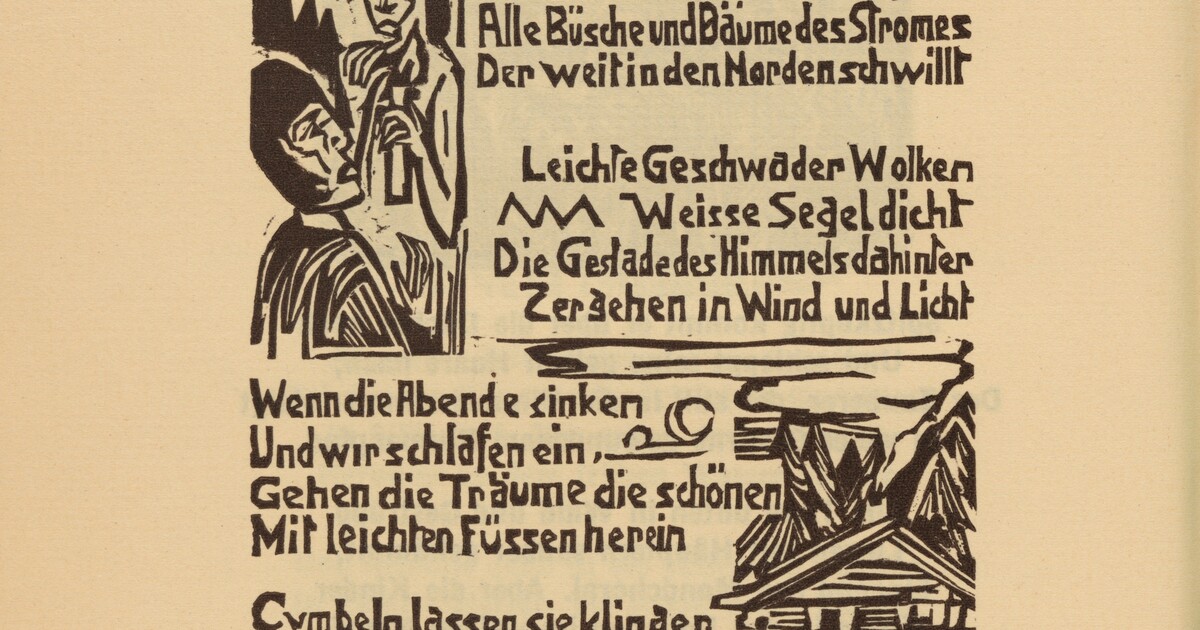 Alle Büsche und Bäume des Stromes
Der weit in den Norden schwillt
Leichte Geschwader Wolken
Weisse Segel dicht
Die Gestade des Himmels dahinter
Zergehen in Wind und Licht
Wenn die Abende sinken
Und wir schlafen ein,
Gehen die Träume die schönen
Mit leichten Füssen herein
Cymbeln lassen sie klingen